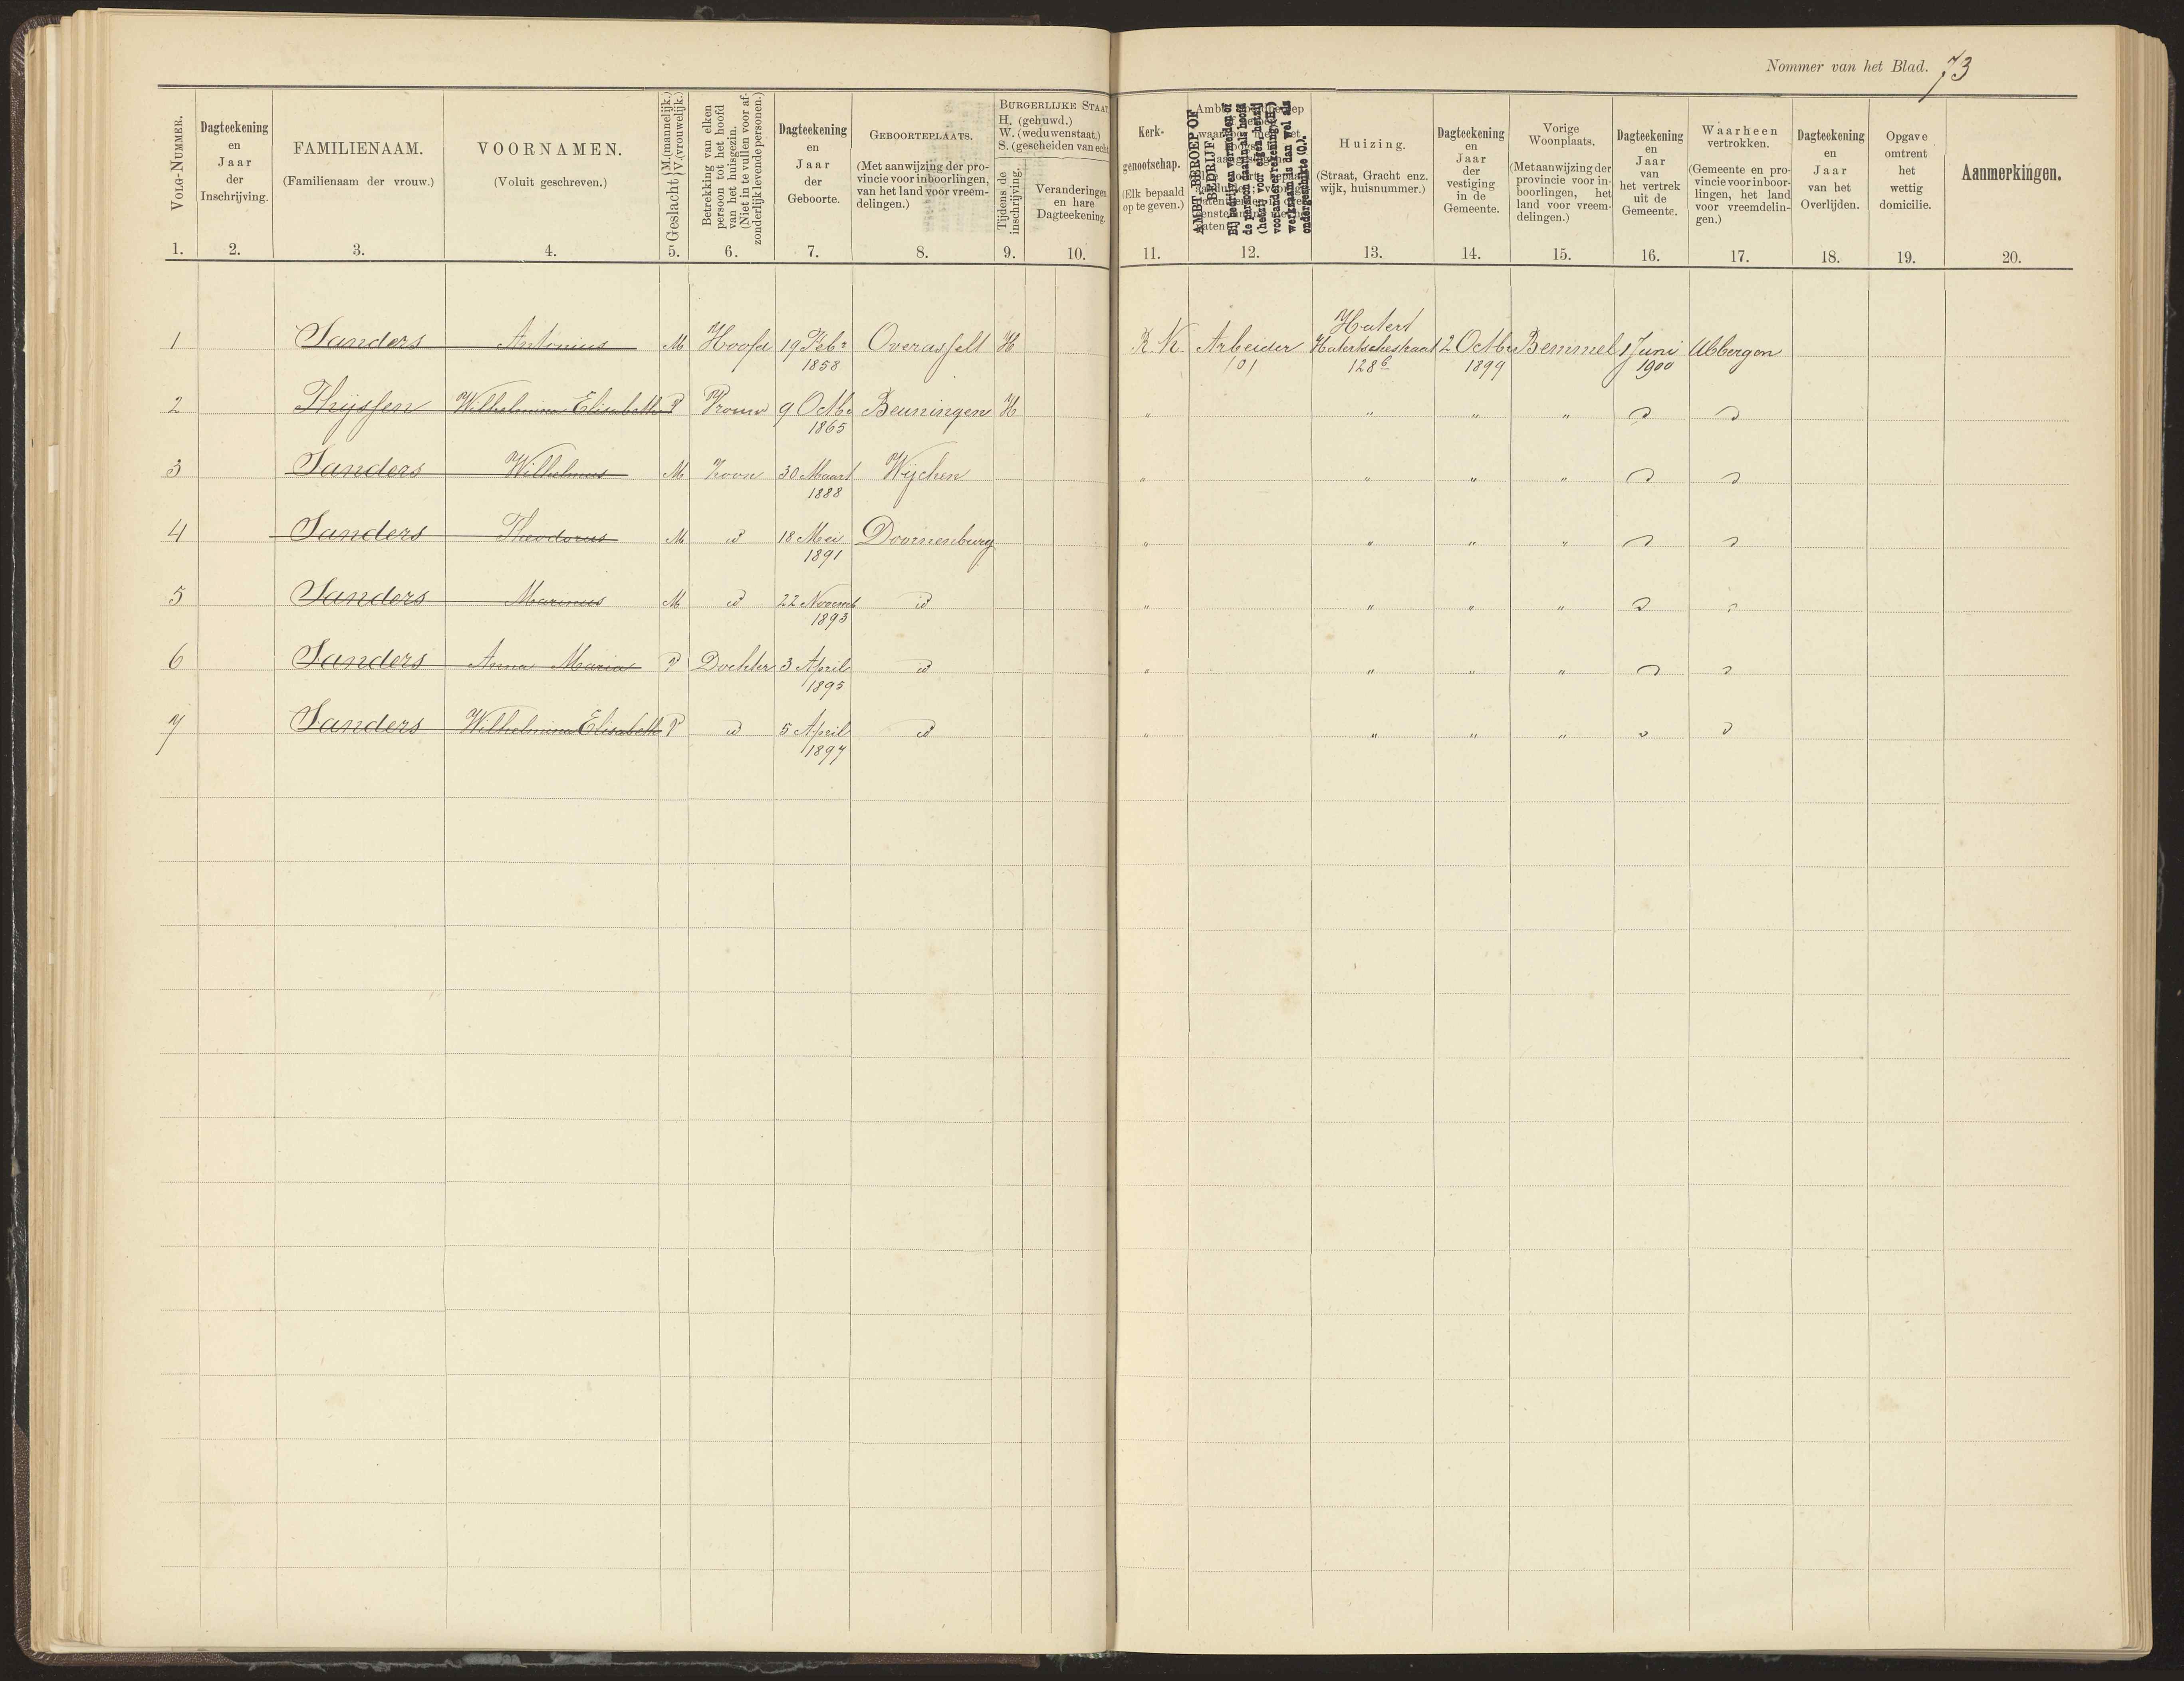 Nommer van het Blad. 73
VOLG-NUMMER.
Dagteekening
en
Jaar
der
Inschrijving.
FAMILIENAAM.
(Familienaam der vrouw.)
VOORNAMEN.
(Voluit geschreven.)
Geslacht M.(mannelijk.) V.(vrouwelijk.)
Betrekking van elken
persoon tot het hoofd
van het huisgezin.
(Niet in te vullen voor af-
zonderlijk levende personen.)
Dagteekening
en
Jaar
der
Geboorte.
GEBOORTEPLAATS.
(Met aanwijzing der pro-
vincie voor inboorlingen,
van het land voor vreem-
delingen.)
BURGERLIJKE STAAT
H. (gehuwd.)
W. (weduwenstaat.)
S. (gescheiden van echt
Tijdens de
inschrijving.
Veranderingen
en hare
Dagteekening.
Kerk-
genootschap.
(Elk bepaald
op te geven.)
AMBT, BEROEP OF
BEDRIJF.
Bij bedrijven vermelden of
de persoon daarin als hoofd
(hetzij voor eigen-, hetzij
voor anderer rekening) (H.)
werkzaam is dan wel als
ondergeschikte (O.).
Huizing.
(Straat, Gracht enz.
wijk, huisnummer.)
Dagteekening
en
Jaar
der
vestiging
in de
Gemeente.
Vorige
Woonplaats.
(Met aanwijzing der
provincie voor in-
boorlingen, het
land voor vreem-
delingen.)
Dagteekening
en
Jaar
van
het vertrek
uit de
Gemeente.
Waarheen
vertrokken.
(Gemeente en pro-
vincie voor inboor-
lingen, het land
voor vreemdelin-
gen.)
Dagteekening
en
Jaar
van het
Overlijden.
Opgave
omtrent
het
wettig
domicilie.
Aanmerkingen.
1. 2. 3. 4. 5. 6. 7. 8. 9. 10. 11. 12. 13. 14. 15. 16. 17. 18. 19. 20.
Hatert
1 Sanders Antonius M Hoofd 19 Febr Overasselt H R.K. Arbeider Hatertschestraat 2 Octbr Bemmel 1 Juni Ubbergen
1858 101 128 6 1899 1900
2 Thijssen Wilhelmina Elisabeth V Vrouw 9 Octbr Beuningen H " " " "
1865
3 Sanders Wilhelmus M Zoon 30 Maart Wijchen " " " "
1888
4 Sanders Theodorus M id 18 Mei Doornenburg " " " "
1891
5 Sanders Marinus M id 22 Novemb id " " " "
1893
6 Sanders Anna Maria V Dochter 3 April id " " " "
1895
7 Sanders Wilhelmina Elisabeth V id 5 April id " " " "
1897